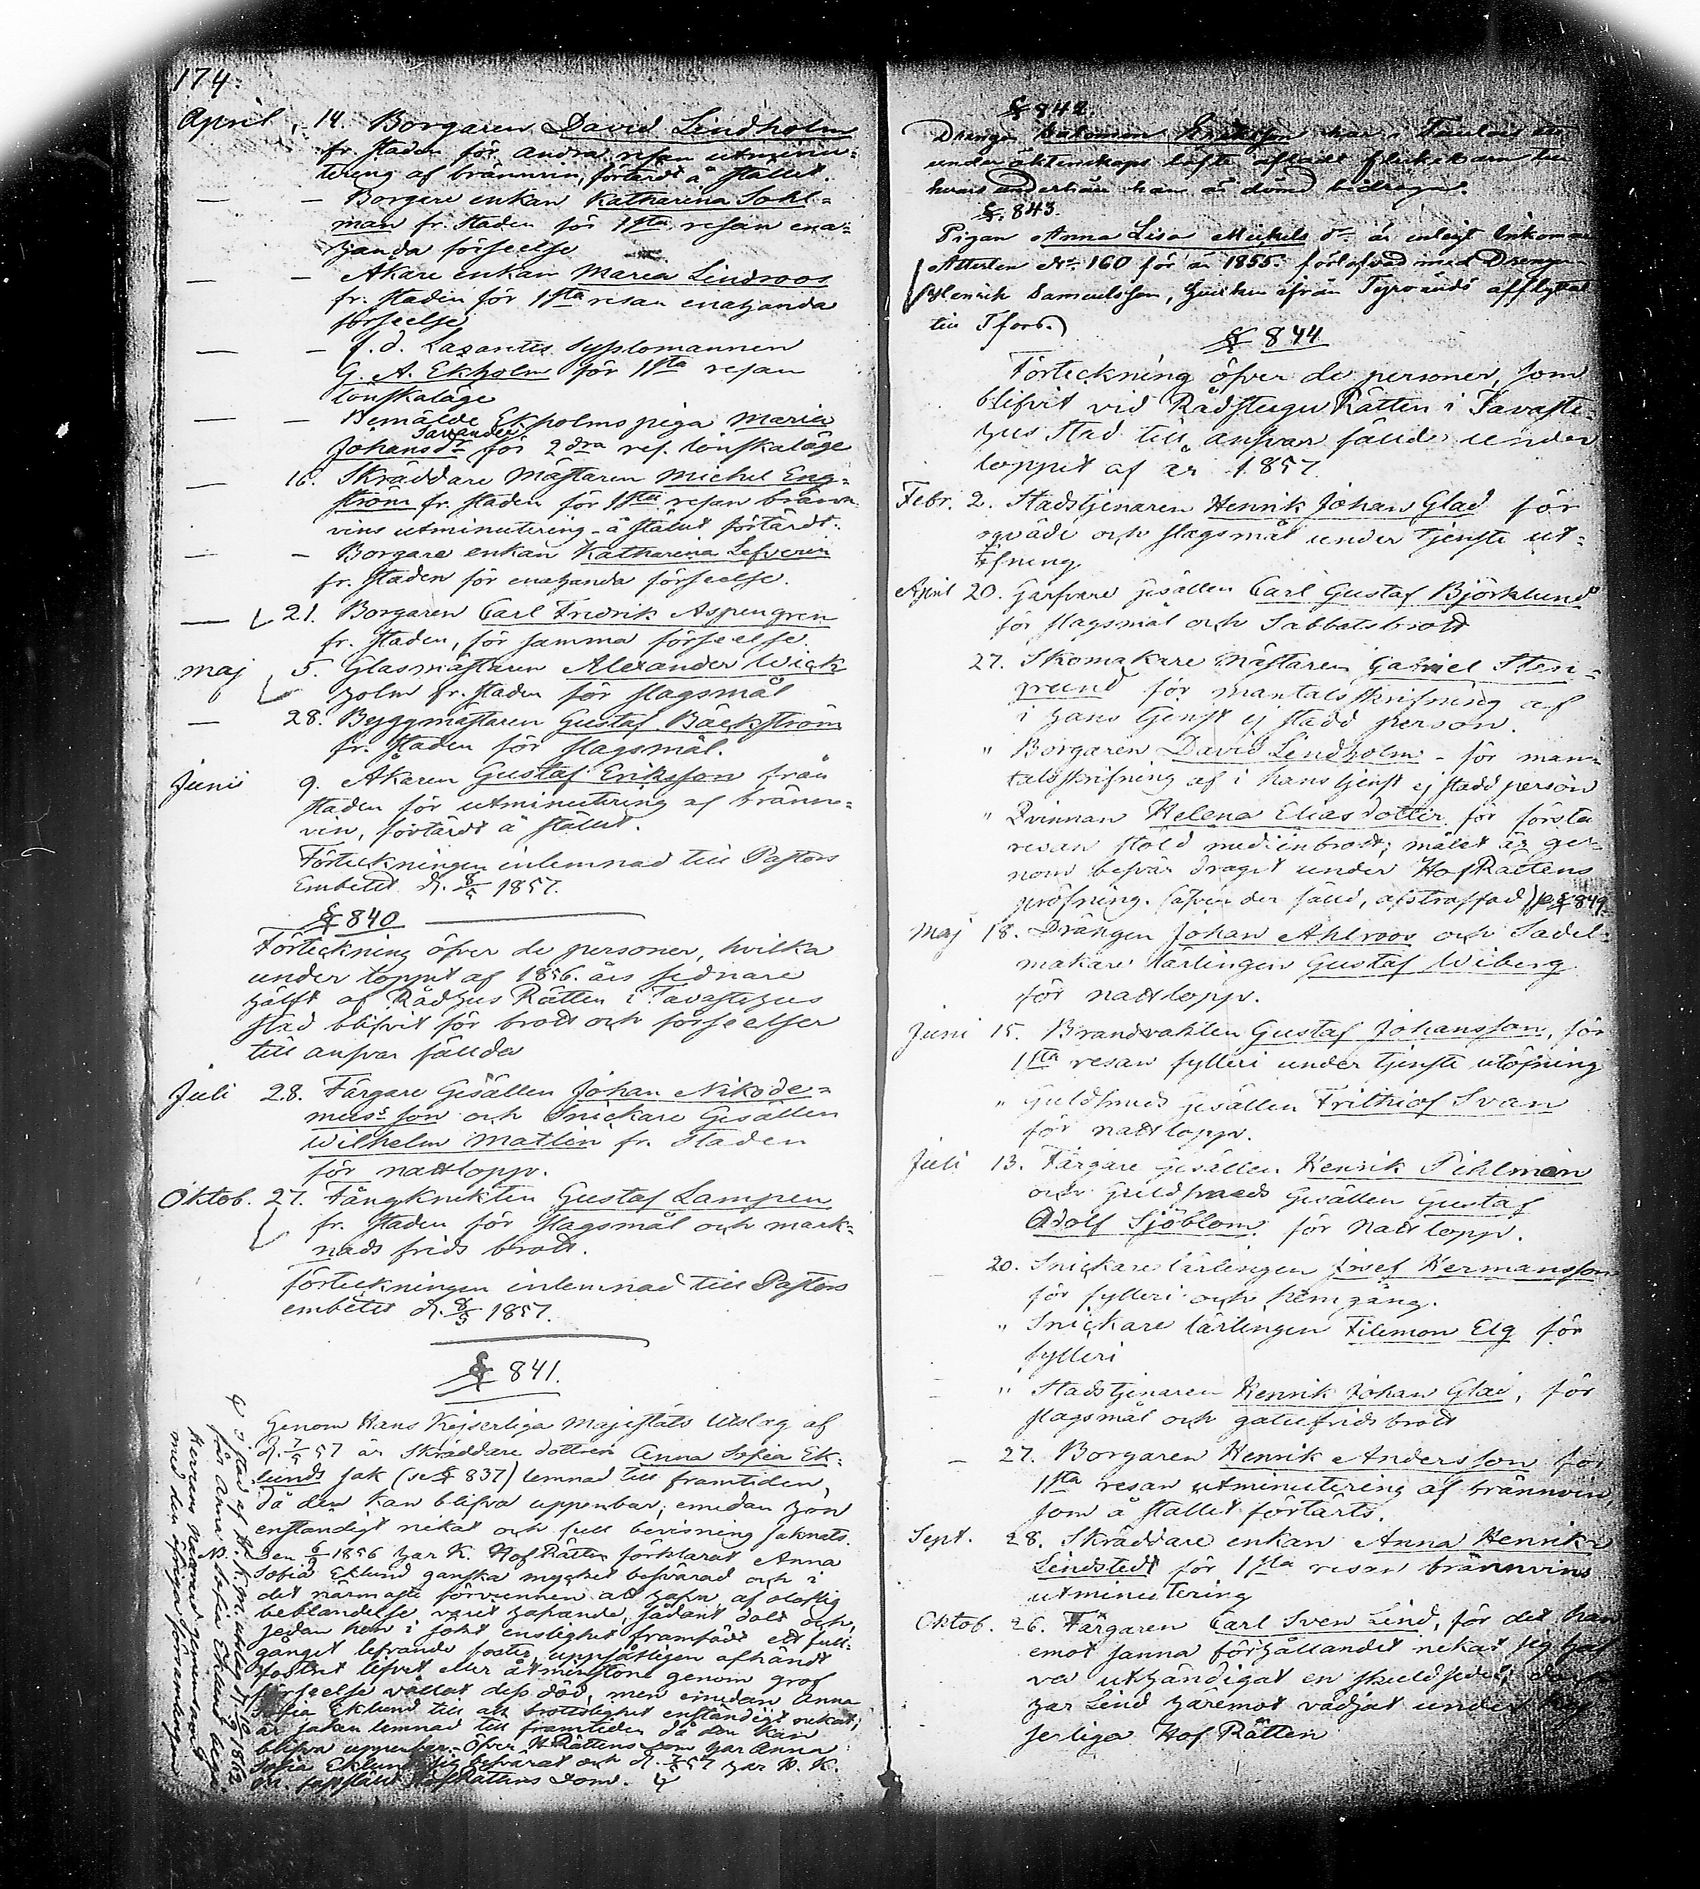 174.
April. 14. Borgaren David Lindholm
fr. staden för andra resan utminu-
tering af brännvin, förtärdt å stället.
— – Borgare enkan Katharina Sohl-
man fr. staden för 1sta resan ena-
handa förseelse
— – Åkare enkan Maria Lindroos
fr. staden för 1sta resan enahanda
förseelse
— – f.d. Lazaretts sysslomannen
G. A. Ekholm för 1sta resan
lönskaläge
— – Bemälde Ekholms piga Maria
Johansdr för 2dra res. lönskaläge
— 16. Skräddare Mästaren Michel Eng-
ström fr. staden för 1sta resan bränn-
vins utminutering å stället förtärdt.
— – Borgare enkan Katharina Lefveren
fr. staden för enahanda förseelse.
— 21. Borgaren Carl Fredrik Aspengren
fr. staden, för samma förseelse.
Maj 5. Glasmästaren Alexander Wick-
holm fr. staden för slagsmål
— 28. Byggmästaren Gustaf Bäckström
fr. staden för slagsmål.
Junii 9. Åkaren Gustaf Eriksson från
staden för utminutering af bränn-
vin, förtärdt å stället.
Förteckningen inlemnad till Pastors
Embetet d. 8/5 1857.
§ 840
Förteckning öfver de personer, hvilka
under loppet af 1856 års sednare
hälft af Rådhus Rätten i Tavastehus
stad blifvit för brott och förseelser
till ansvar fällda
Juli 28. Färgare Gesällen Johan Nikode-
mus son och Snickare Gesällen
Wilhelm Matlin fr. staden
för nattlopp.
Oktob. 27. Fångknekten Gustaf Lampen
fr. staden för slagsmål och mark-
nads frids brott.
Förteckningen inlemnad till Pastors
embetet d. 8/5 1857.
§ 841.
Genom Hans Kejserliga Majestäts Utslag af
d. 7/5 57 är Skräddare dottren Anna Sofia Ek-
lunds sak (se § 837) lemnad till framtiden,
då den kan blifva uppenbar, emedan hon
enständigt nekat och full bevisning saknats.
Den 6/9 1856 har K. Hof Rätten förklarat Anna
Sofia Eklund ganska mycket besvärad och i
det närmaste förvunnen att hafva af oloflig
beblandelse varit hafvande, sådant dolt och,
sedan hon i sökt enslighet framfödt ett full-
gånget lefvande foster, uppsåtligen afhändt
fostret lifvet eller åtminstone genom grof
förseelse vållat dess död, men emedan Anna
Sofia Eklund till allt brottslighet enständigt nekat,
är saken lemnad till framtiden då den kan
blifva uppenbar. Öfver H. Rättens dom har Anna
Sofia Eklund sig besvärat och d. 7/5 57 har H. K.
M. fastställt HofRättens dom.
§ 842
Drengen Salomon Eriksson har i
under äktenskaps löfte aflat flickebarn
hvars underhåll han är dömd bidraga.
§ 843.
Pigan Anna Lisa Mickels dr är enligt inkommen
Attesten No 160 för år 1855 förlofvad med Drengen
Henrik Samuelsson, hvilken ifrån Tyrvändö afflyttat
till Tfors.)
§ 844
Förteckning öfver de personer, som
blifvit vid Rådstugu Rätten i Tavaste-
hus stad till ansvar fällde under
loppet af år 1857
Febr. 2. Stadstjenaren Henrik Johan Glad för
oqväde och slagsmål under tjenste ut-
öfning
April 20. Garfvare gesällen Carl Gustaf Björklund
för slagsmål och Sabbatsbrott
27. Skomakare Mästaren Gabriel Sten-
grund för mantalsskrifning af
i hans tjenst ej stadd person.
" Borgaren David Lindholm – för man-
talsskrifning af i hans tjenst ej stadd person
" Qvinnan Helena Eliasdotter för första
resan stöld med inbrott; målet är ge-
nom besvär draget under HofRättens
pröfning. (äfven der fälld, afstraffad) se § 849
Maj 18. Drängen Johan Ahlroos och Sadel-
makare lärlingen Gustaf Wiberg
för nattlopp.
Juni 15. Brandvakten Gustaf Johansson, för
1sta resan fylleri under tjenste utöfning
" Guldsmeds gesällen Frithiof Svan
för nattlopp.
Juli 13. Färgare gesällen Henrik Pihlman
och Guldsmeds Gesällen Gustaf
Adolf Sjöblom för Nattlopp.
20. Snickarelärlingen Josef Hermansson
för fylleri och hemgång.
" Snickare lärlingen Filemon Elg för
fylleri
" Stadstjenaren Henrik Johan Glad, för
slagsmål och gatufrids brott
— 27. Borgaren Henrik Andersson för
1sta resan utminutering af brännvin,
som å stället förtärts.
Sept. 28. Skräddare enkan Anna Henrika
Lindstedt för 1sta resan brännvins
utminutering
Oktob. 26. Färgaren Carl Sven Lind, för det han
emot sanna förhållandet nekat sig haf-
va uthändigat en skuldsedel;
har Lind häremot vädjat under Kej
serliga Hof Rätten